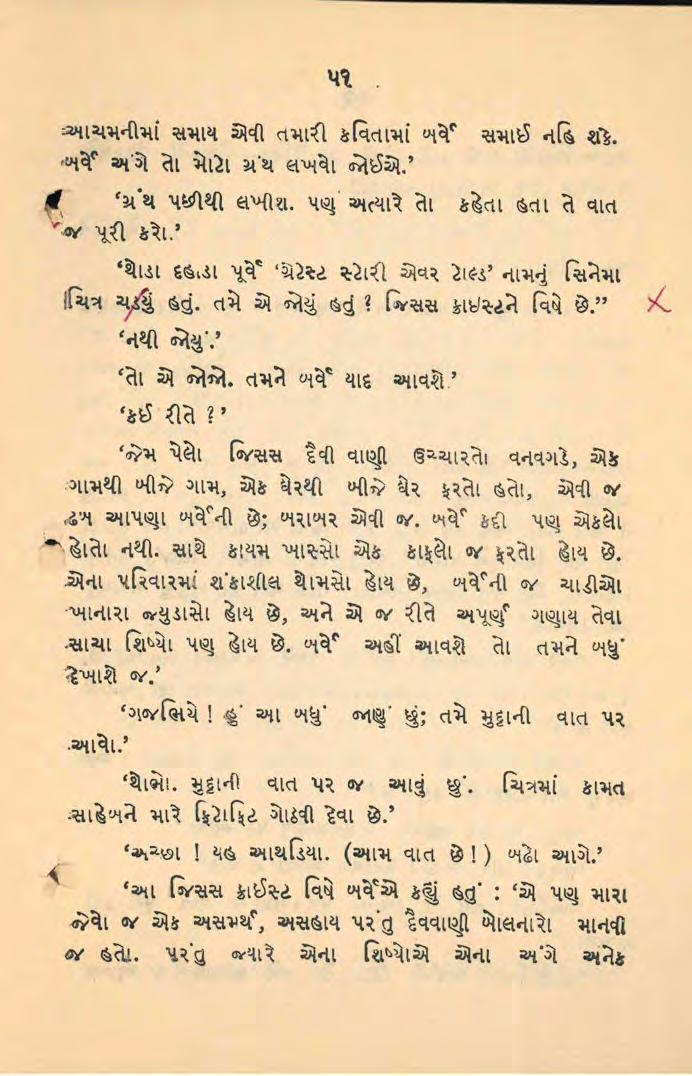 ૫૧
આચમનીમાં સમાય એવી તમારી કવિતામાં બર્વે સમાઈ નહિ શકે.
બર્વે અંગે તો મોટો ગ્રંથ લખવો જોઈએ.’
‘ગ્રંથ પછીથી લખીશ. પણ અત્યારે તો કહેતા હતા તે વાત
જ પૂરી કરો.’
‘થોડા દહાડા પૂર્વે ‘ગ્રેટેસ્ટ સ્ટોરી એવર ટોલ્ડ’ નામનું સિનેમા
ચિત્ર ચડયું હતું. તમે એ જોયું હતું ? જિસસ ક્રાઇસ્ટને વિષે છે.”
‘નથી જોયું.’
‘તો એ જોજો. તમને બર્વે યાદ આવશે.’
‘કઈ રીતે ?’
‘જેમ પેલો જિસસ દૈવી વાણી ઉચ્ચારતો વનવગડે, એક
ગામથી બીજે ગામ, એક ઘેરથી બીજે ઘેર ફરતો હતો, એવી જ
ઢબ આપણા બર્વેની છે; બરાબર એવી જ. બર્વે કદી પણ એકલો
હોતો નથી. સાથે કાયમ ખાસ્સો એક કાફલો જ ફરતો હોય છે.
એના પરિવારમાં શંકાશીલ થોમસો હોય છે, બર્વેની જ ચાડીઓ
ખાનારા જ્યુડાસો હોય છે, અને એ જ રીતે અપૂર્ણ ગણાય તેવા
સાચા શિષ્યો પણ હોય છે. બર્વે અહીં આવશે તો તમને બધું
દેખાશે જ.’
‘ગજભિયે ! હું આ બધું જાણું છું; તમે મુદ્દાની વાત પર
આવો.’
‘થોભો. મુદ્દાની વાત પર જ આવું છું. ચિત્રમાં કામત
સાહેબને મારે ફિટોફિટ ગોઠવી દેવા છે.’
‘અચ્છા ! યહ આયડિયા. (આમ વાત છે !) બઢો આગે.’
‘આ જિસસ ક્રાઈસ્ટ વિષે બર્વેએ કહ્યું હતું : ‘એ પણ મારા
જેવો જ એક અસમર્થ, અસહાય પરંતુ દૈવવાણી બોલનારો માનવી
જ હતો. પરંતુ જ્યારે એના શિષ્યોએ એના અંગે અનેક